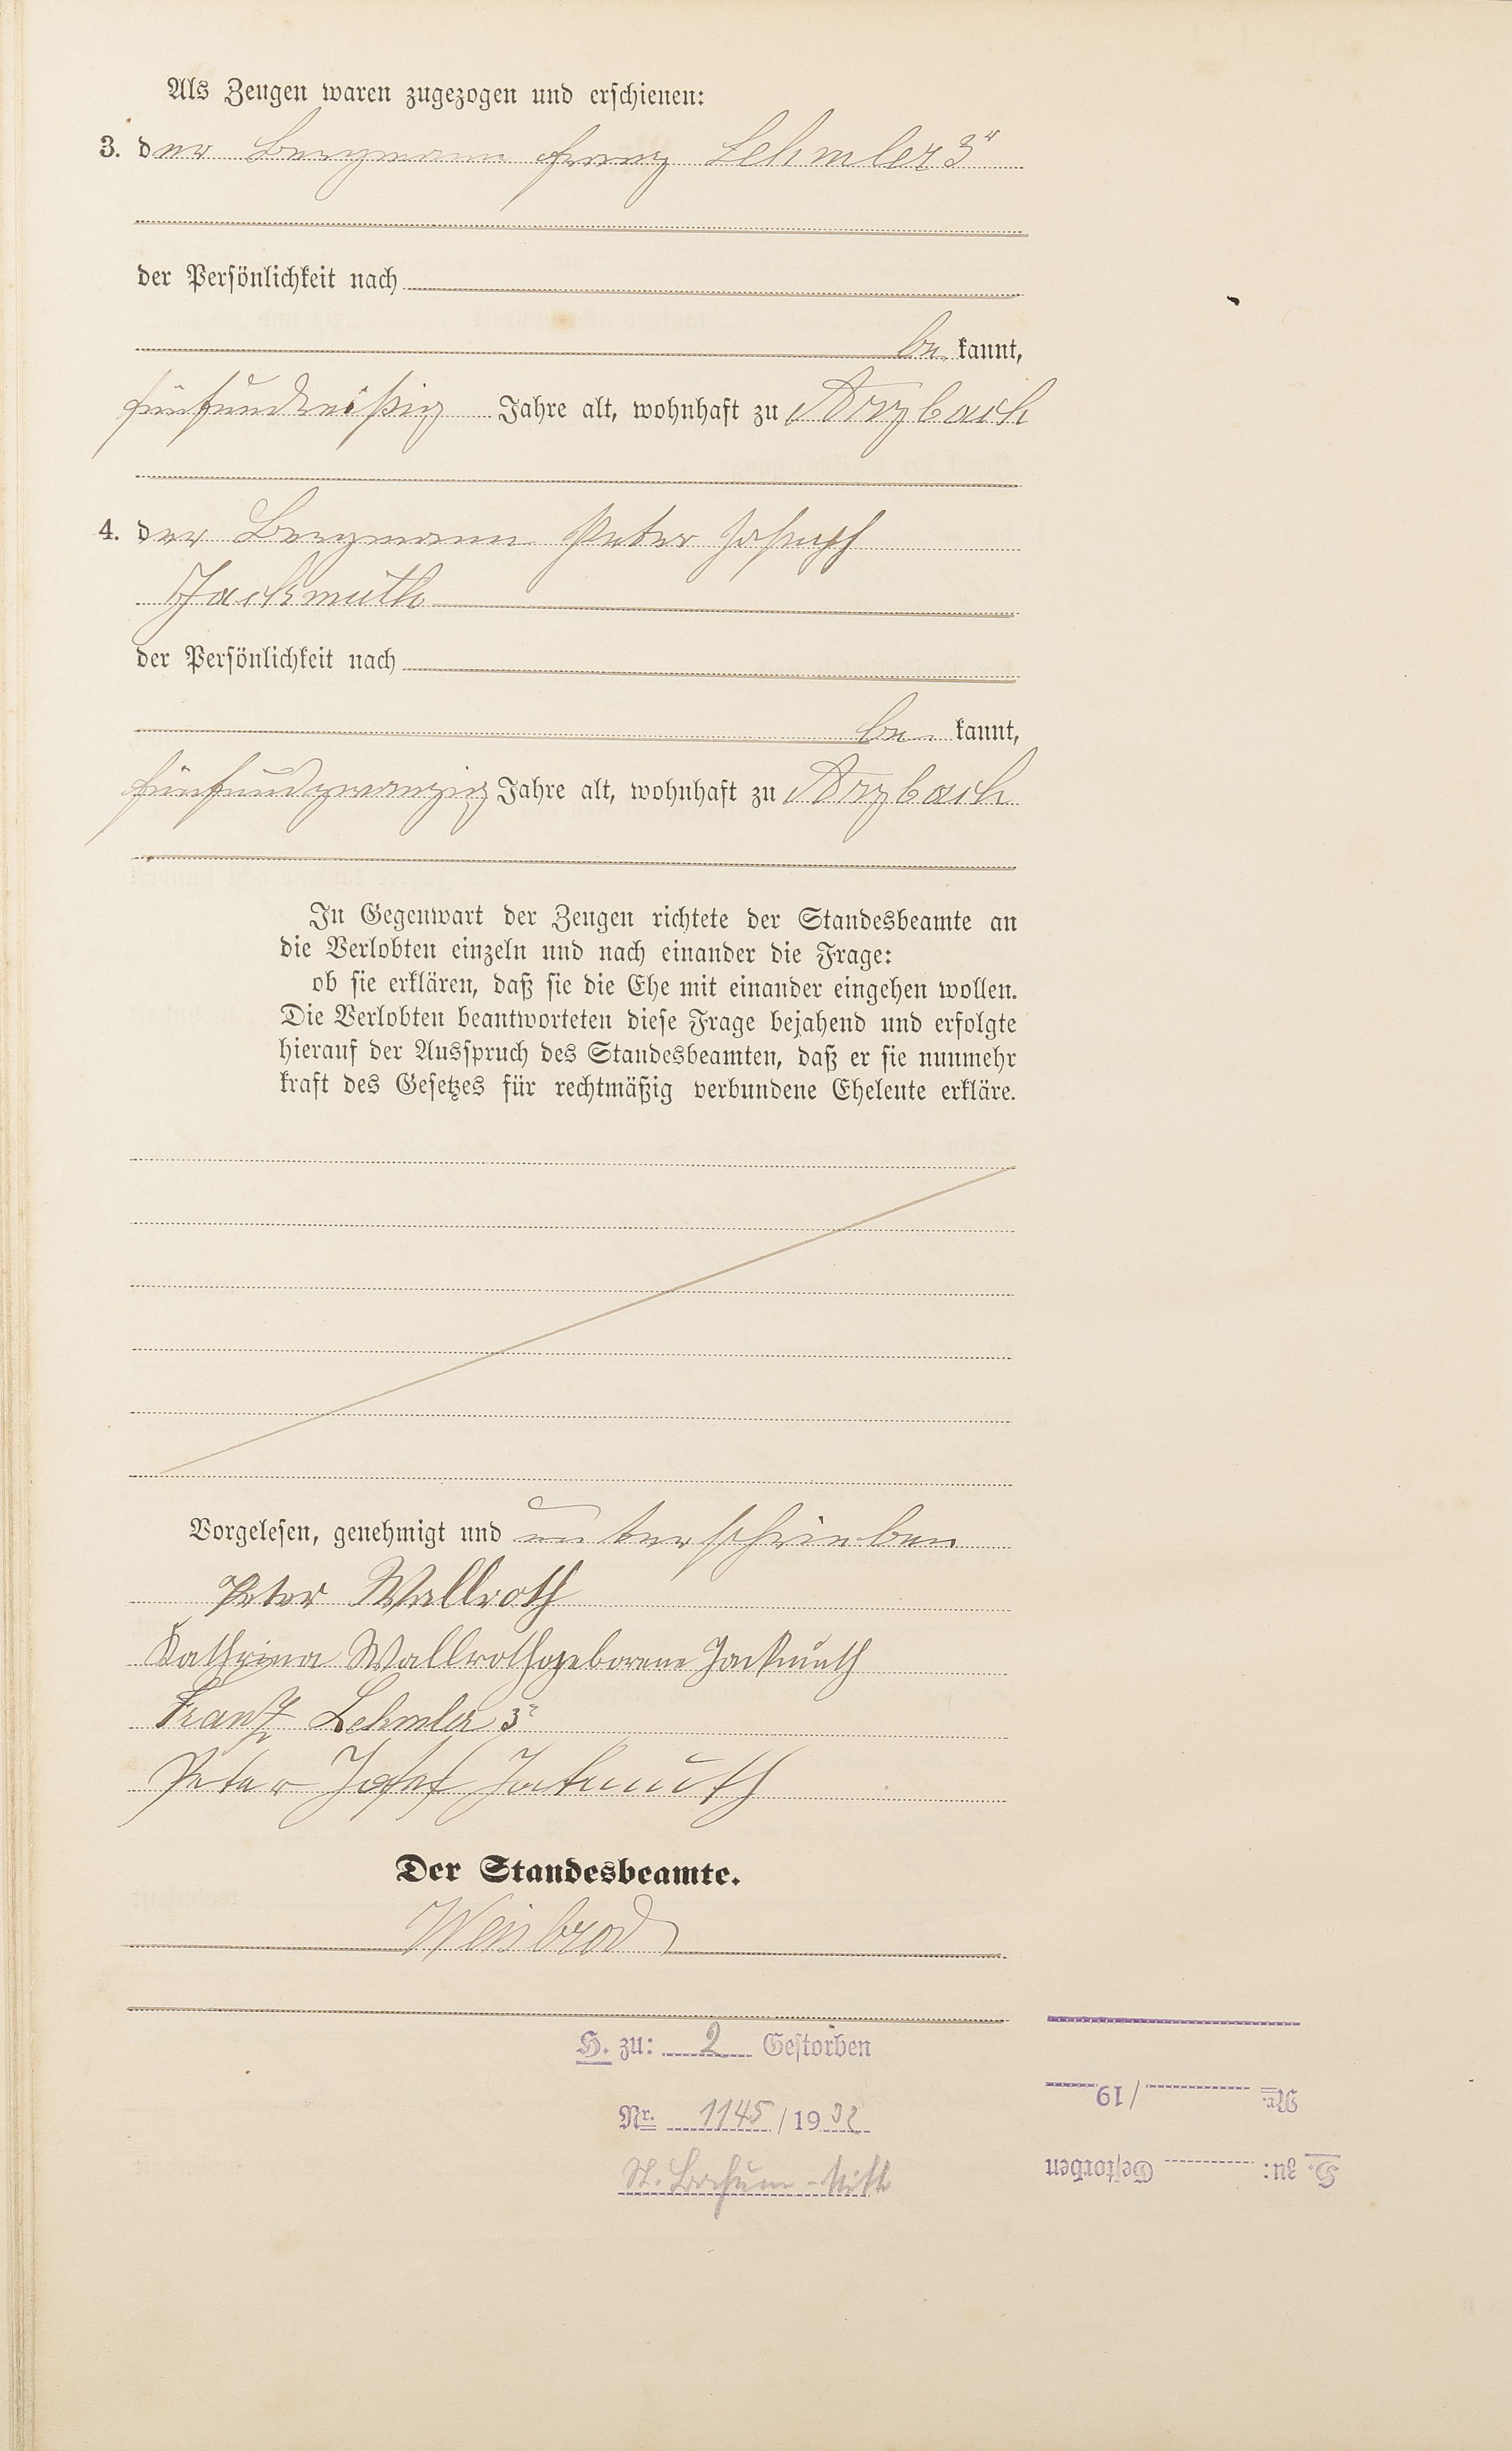 Als Zeugen waren zugezogen und erschienen:
3. der Bergmann Franz Lehmler 3r
der Persönlichkeit nach
be kannt,
fünfundreißig Jahre alt, wohnhaft zu Arzbach
4. der Bergmann Peter Joseph
Jackmuth
der Persönlichkeit nach
be kannt,
fünfundzwanzig Jahre alt, wohnhaft zu Arzbach
In Gegenwart der Zeugen richtete der Standesbeamte an
die Verlobten einzeln und nach einander die Frage:
ob sie erklären, daß sie die Ehe mit einander eingehen wollen.
Die Verlobten beantworteten diese Frage bejahend und erfolgte
hierauf der Ausspruch des Standesbeamten, daß er sie nunmehr
kraft des Gesetzes für rechtmäßig verbundene Eheleute erkläre.
Vorgelesen, genehmigt und unterschrieben
Peter Wallroth
Kathrina Wallroth geborene Jackmuth
Franz Lehmler 3r
Peter Josef Jakmuth
Der Standesbeamte.
Weisbrod
H. zu: 2 Gestorben
Nr. 1145 / 1932
St. Bochum-Mitte
H. zu: Gestorben
Nr. / 19